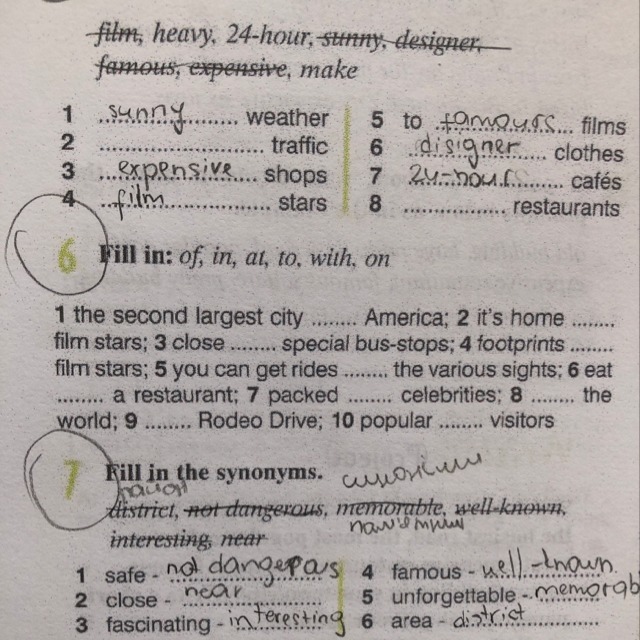 film, heavy, 24-hour, sunny, designer,
famous, expensive, make
1 sunny weather
2 ........ traffic
3 expensive shops
4 film stars
5 to famours films
6 disigner clothes
7 24-hour cafés
8 ........ restaurants
6 Fill in: of, in, at, to, with, on
1 the second largest city ........ America; 2 it's home ........
film stars; 3 close ........ special bus-stops; 4 footprints ........
film stars; 5 you can get rides ........ the various sights; 6 eat
........ a restaurant; 7 packed ........ celebrities; 8 ........ the
world; 9 ........ Rodeo Drive; 10 popular ........ visitors
7 Fill in the synonyms. синоними
district, not dangerous, memorable, well-known,
interesting, near
1 safe - not dangepous
2 close - near
3 fascinating - interesting
4 famous - well-known
5 unforgettable - memorab
6 area - district